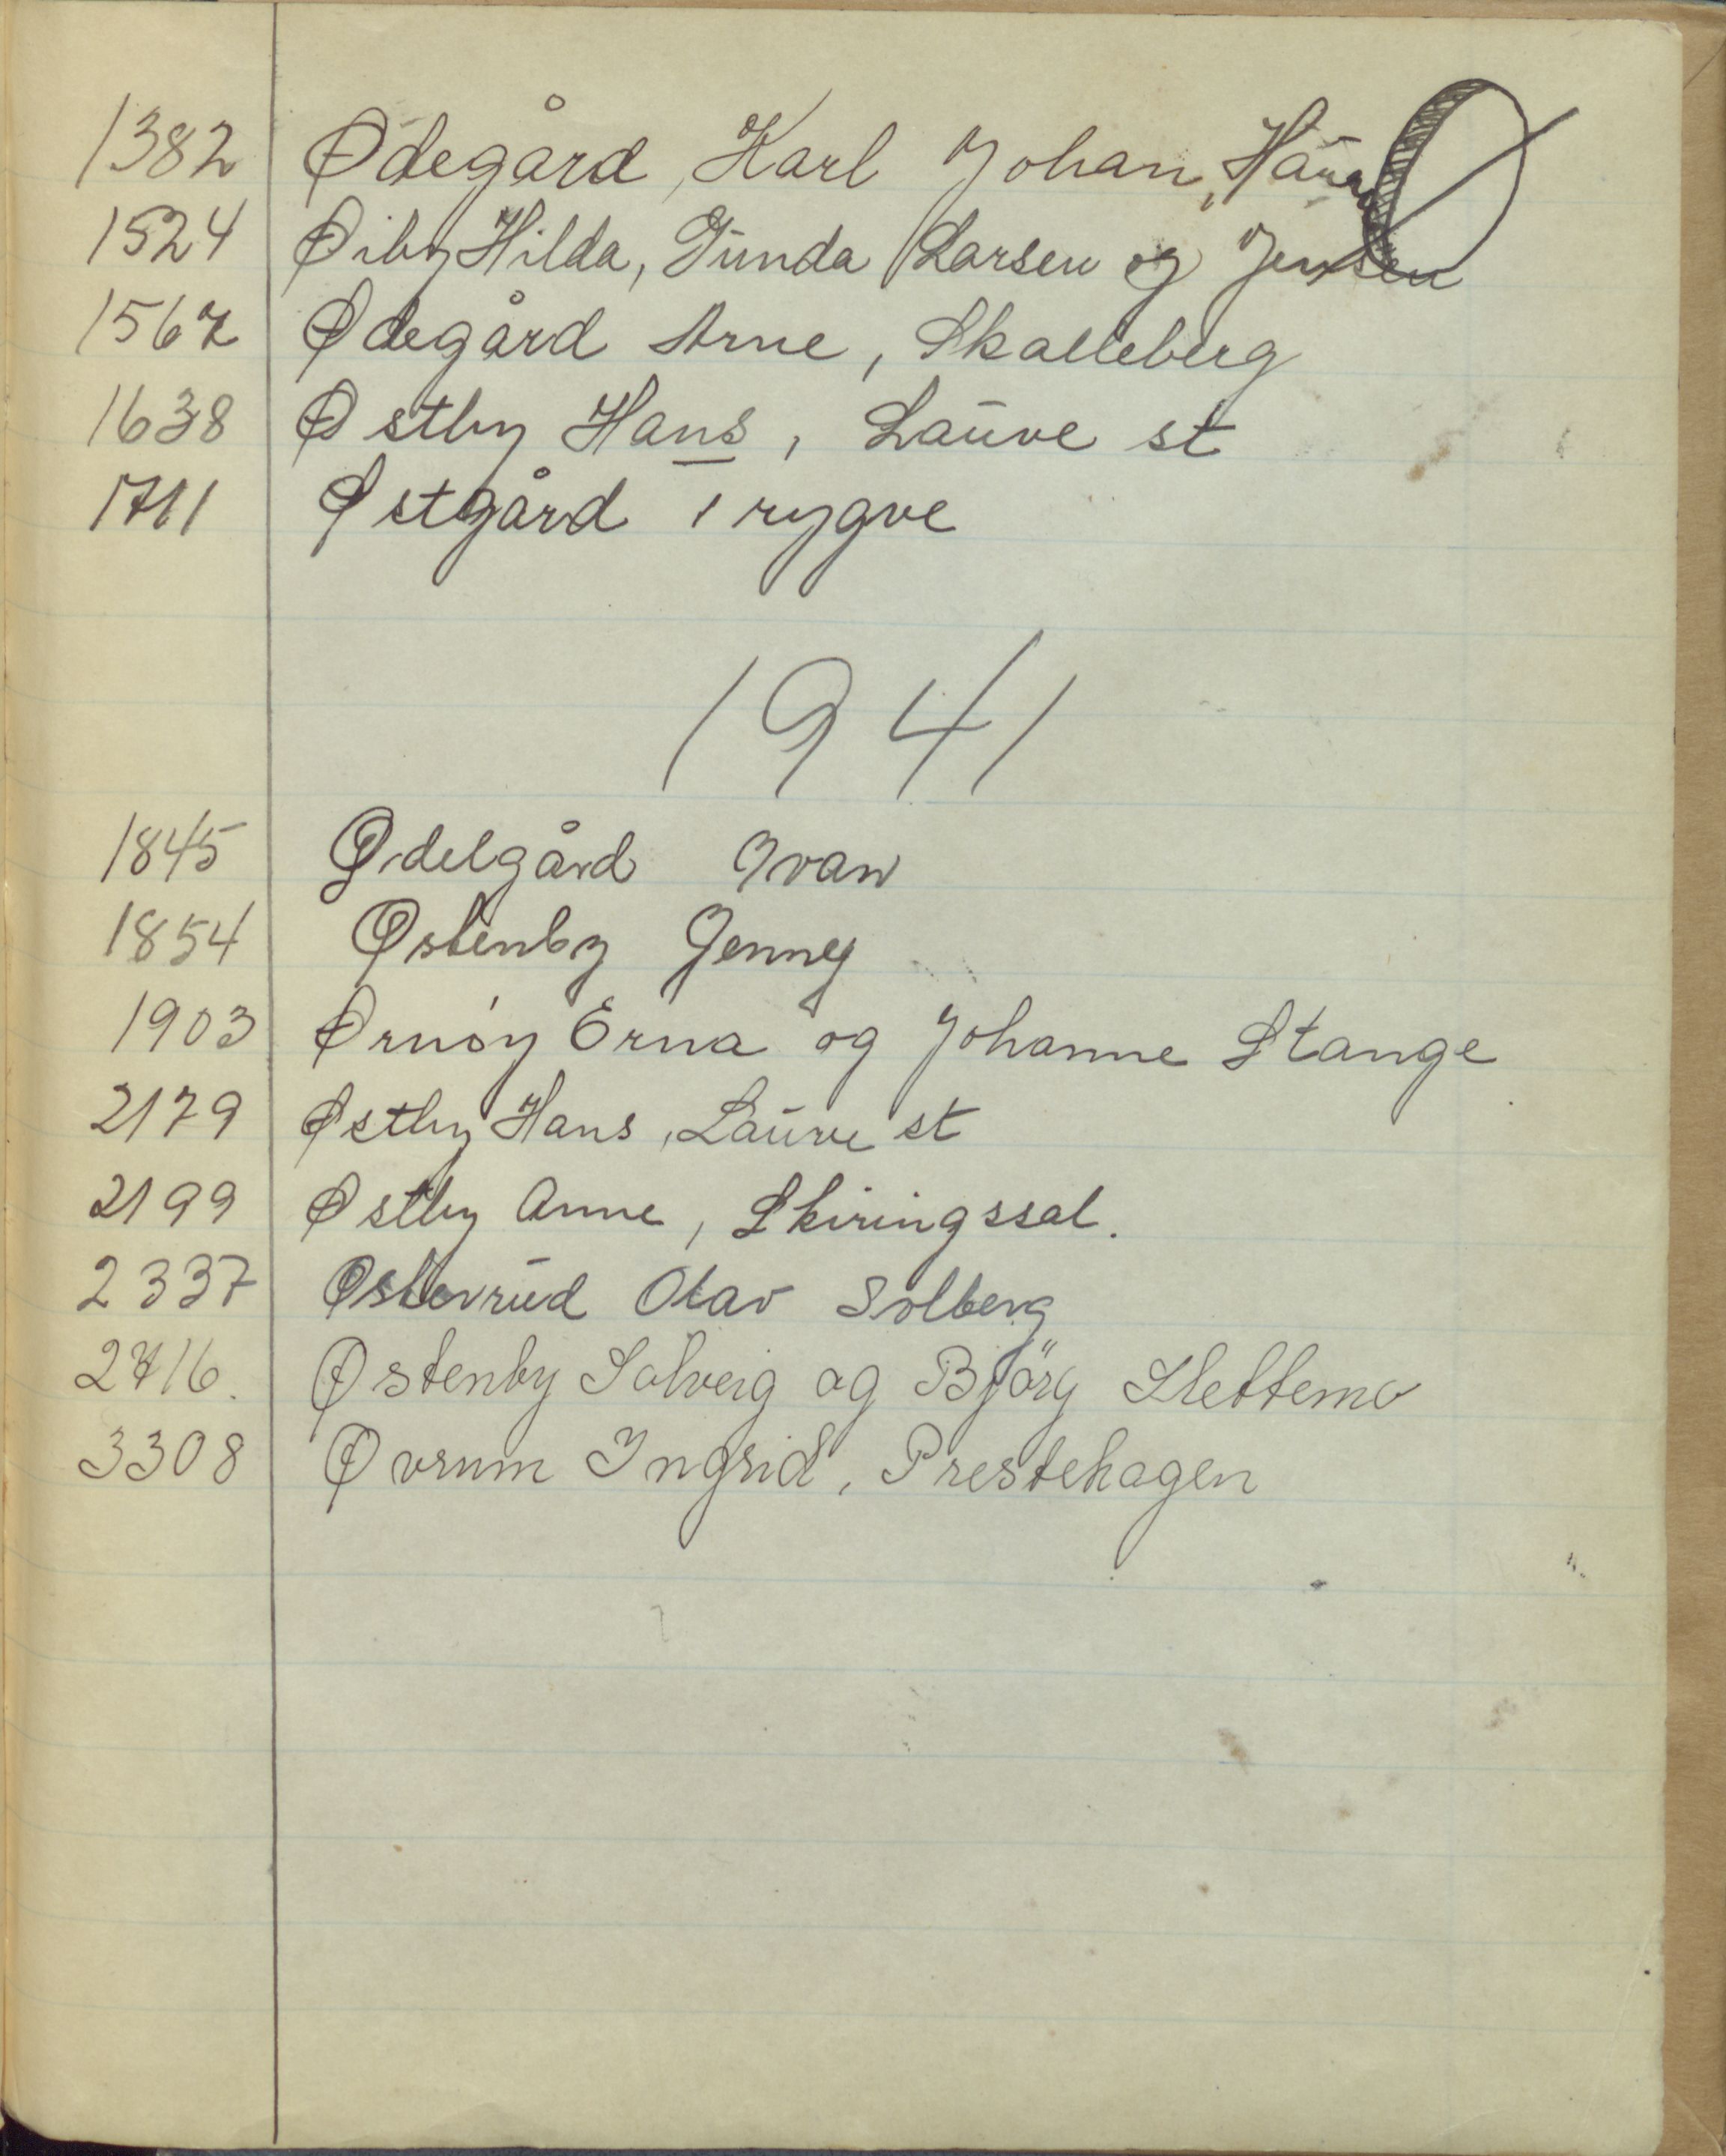 Ø
1382 Ødegård, Karl Johan,
1524 Øiby Hilda, Gunda Larsen og Jensen
1567 Ødegård Arne, Skalleberg
1638 Østby Hans, Lauve st
1711 Østgård Trygve
1941
1845 Ødelgård Ivan
1854 Østenby Jenny
1903 Ørnöy Erna og Johanne Stange
2179 Østby Hans, Lauve st
2199 Østby Anne, Skiringssal.
2337 Østerrud Olav Solberg
2716. Østenby Solveig og Björg Slettemo
3308 Øvrum Ingrid, Prestehagen